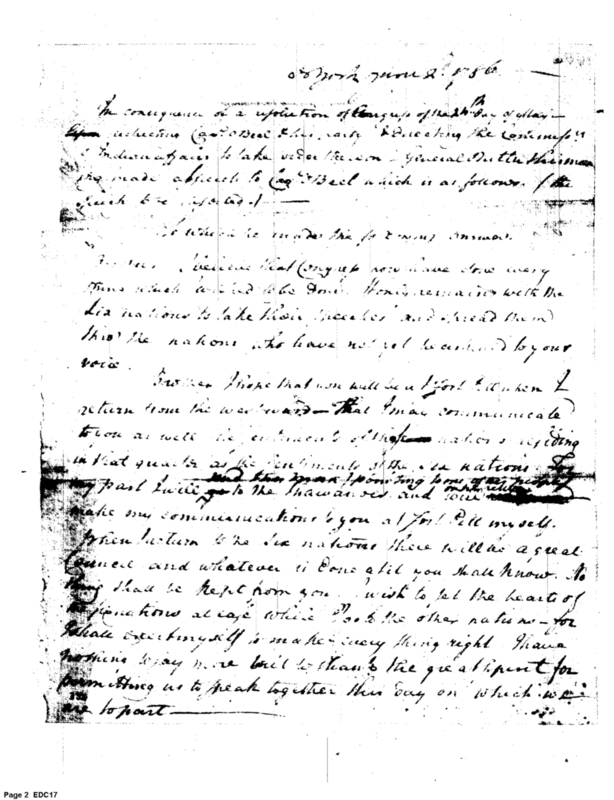 N York 1786
In consequence of a resolution of Congress of the 24th day of May
Capn & his party & directing the
Indian affairs to take order thereon General Butler
made a speech to Capn O'Beel which is as follows. (the
speech to be inserted)
To which he made the following answer.
I believe that Congress now have done every
thing which to be done. It only remains with the
Six nations to take their speeches and spread them
thro' the nations who have not yet to your
voice.
Brother I hope that you will be at fort Pitt when I
return from the westward that I may communicate
to you as well the sentiments of those nations residing
in that quarter as the sentiments of the Six nations For
my part I will go to the Shawanoes and will
make my communications to you at fort Pitt myself.
When I return to the Six nations there will be a great
Council and whatever is done at it you shall know. No
thing shall be kept from you. I wish to set the hearts of
nations at ease while I the other nations for
I shall exert myself to make every thing right I have
nothing to say more but to thank the great Spirit for
permitting us to speak together this day on which we
are to part
Page 2 EDC17